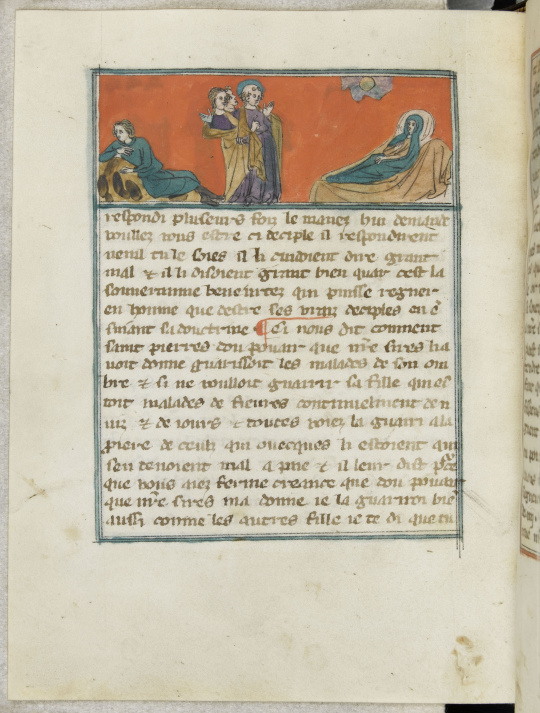 respondi pluseurs foiz le mauez hui demandé
voullez vous estre ci deciple il respondirent
uenil tu le soies il li cuidoient dire grant
mal & il li disoient grant bien quar cest la
souueraínne beneurtez qui puisse regner
en homme que destre ses vrais deciples en e
suiant sa doctrine Ci nous dit comment
saint pierres dou pouair que nr̃e sires li a
uoit donne guarissoit les malades de son om
bre & si ne voulloit guarir sa fille qui es
toit malades de fieures continuelment de n
uiz & de iours & toutes voiez la guari a la
piere de ceulz qui ouecques li estoient qui
sen tenoient mal a paié & il leur dist pour ce
que vous aiez ferme creance que dou pouair
que nr̃e sires ma donne ie la guarroi bie
aussi comme les autres fille ie te di que tu